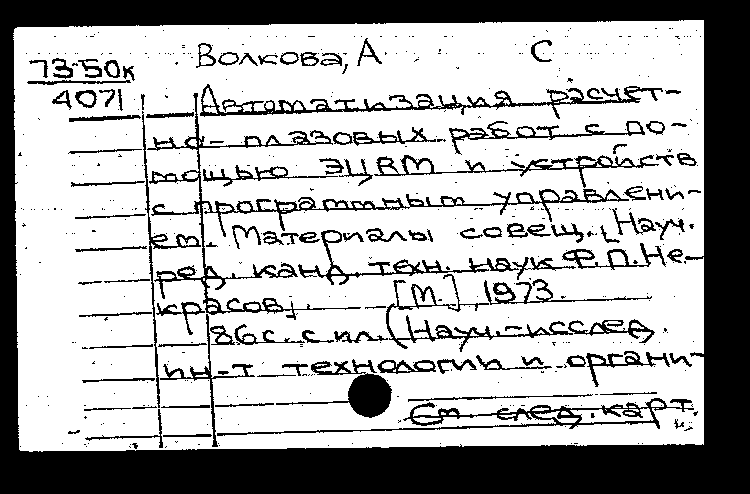 Волкова, А С
73-50к
4071
Автоматизация расчет-
но-плазовых работ с по-
мощью ЭЦВМ и устройств
с программным управлени-
ем. Материалы совещ. [Науч.
ред. канд. техн. наук Ф.П.Не-
красов]. [М.], 1973.
86с. с ил. (Науч.-исслед.
ин-т технологии и органи-
См. след. карт.